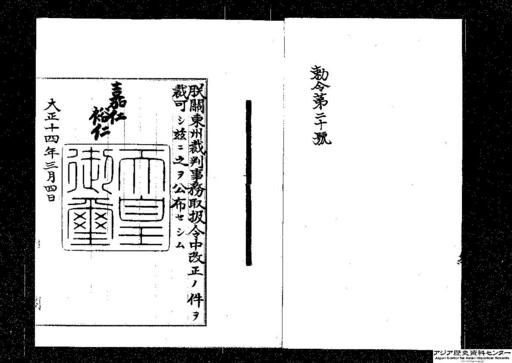 勅令第二十號
朕關東州裁判事務取扱令中改正ノ件ヲ
裁可シ茲ニ之ヲ公布セシム
嘉仁
裕仁
天皇
御璽
大正十四年三月四日
アジア歴史資料センター
Japan Center for Asian Historical Records